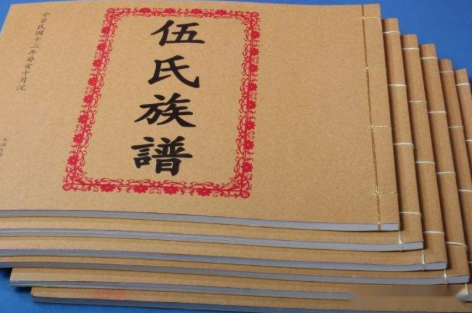 伍氏族譜
中華民國十二年癸亥十月元